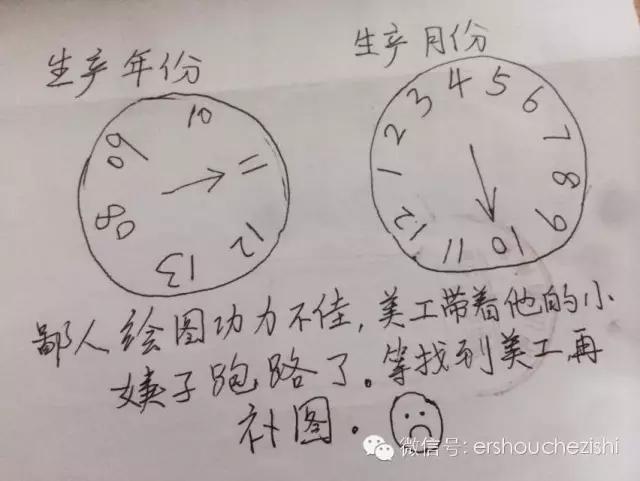 生产年份
生产月份
08
09
10
11
12
13
1
2
3
4
5
6
7
8
9
10
11
12
鄙人绘图功力不佳,美工带着他的小
姨子跑路了。等找到美工再
补图.
微信号: ershouchezishi